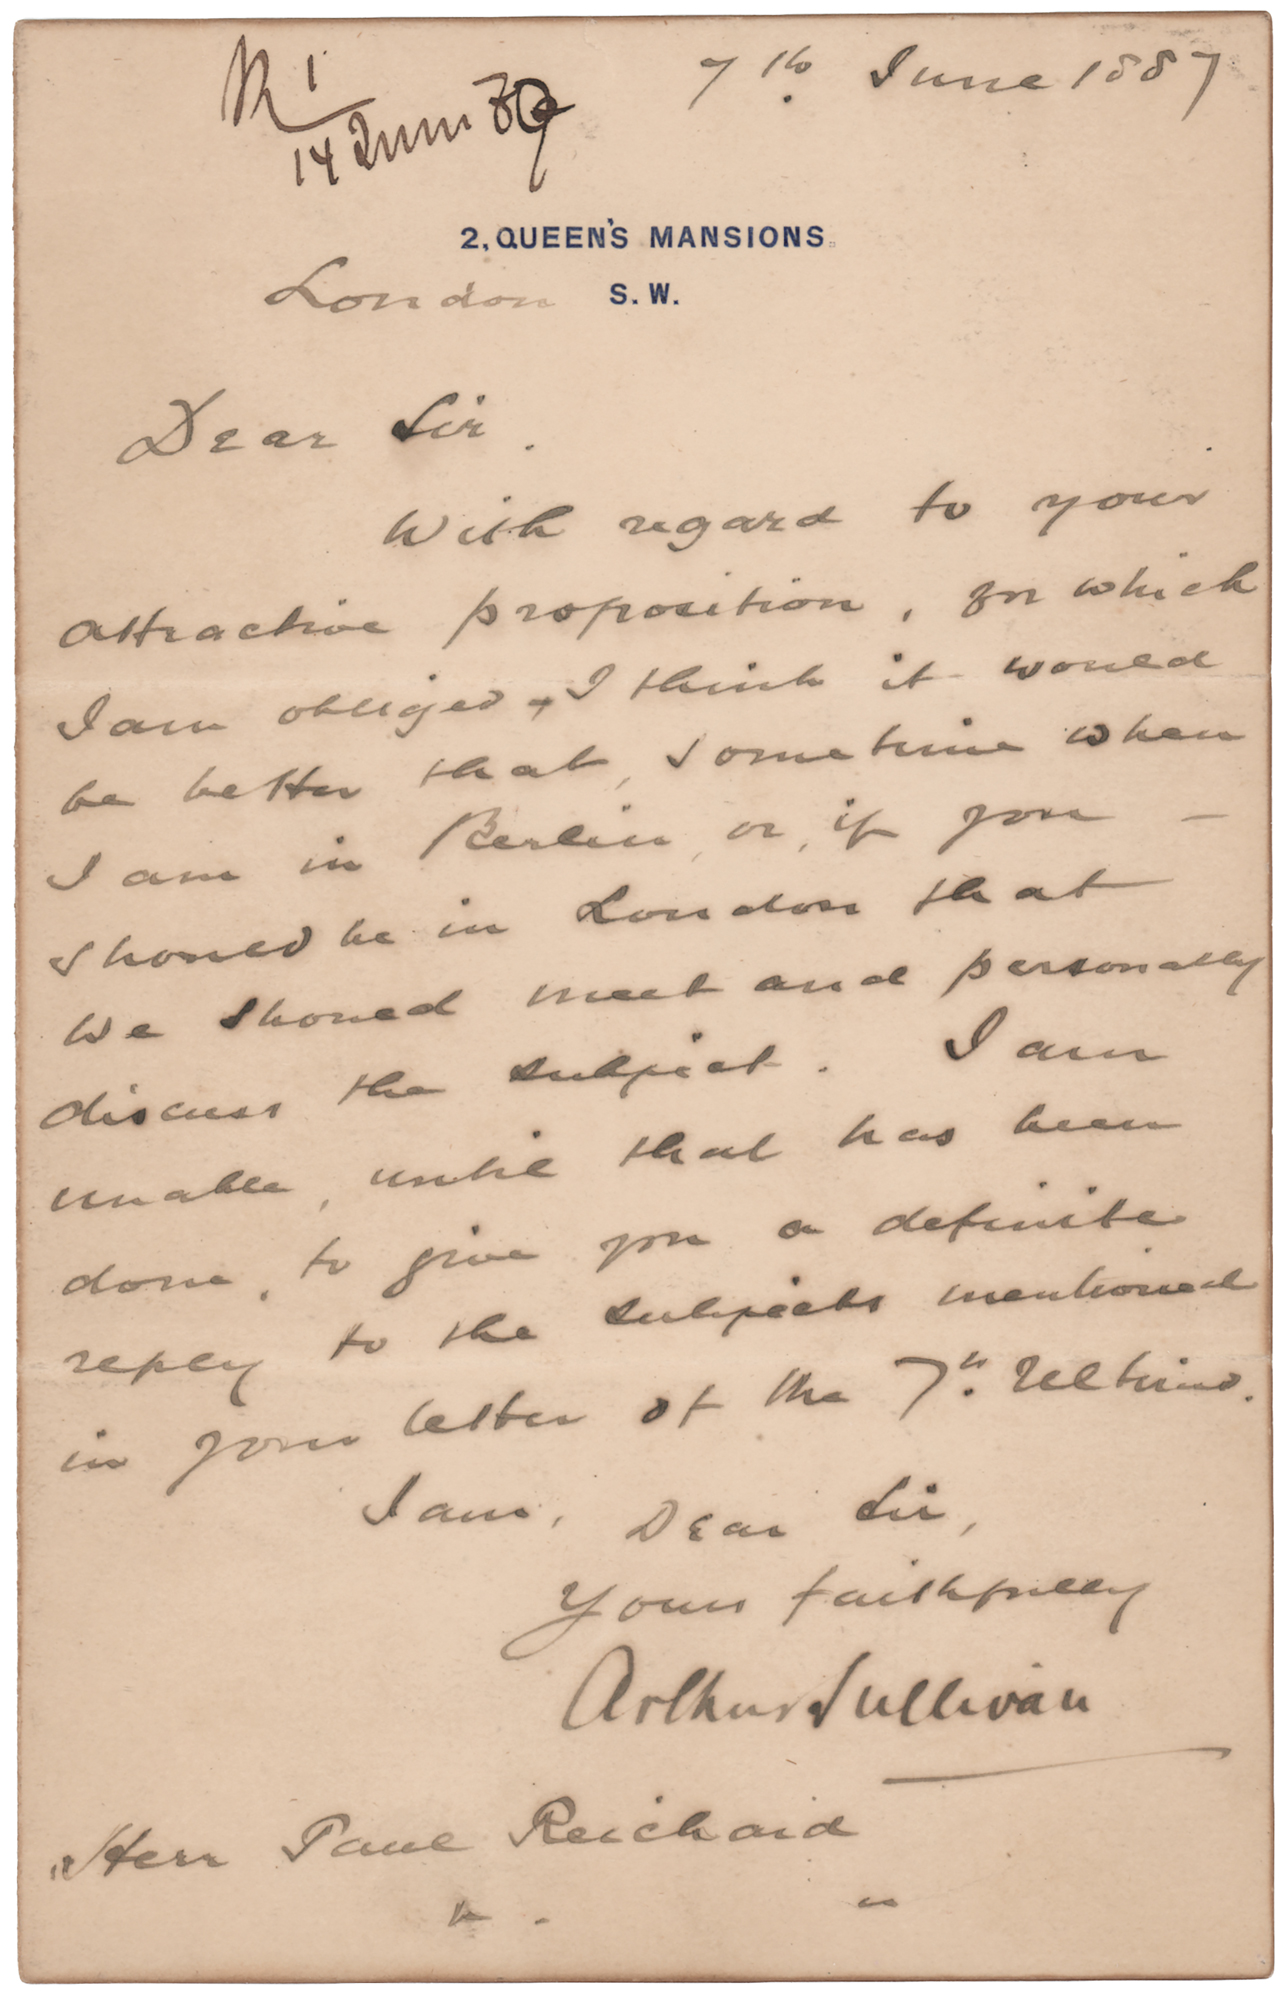 7th June 1887
14 Juni
2, QUEEN'S MANSIONS.
London S. W.
Dear Sir.
With regard to your
attractive proposition, for which
I am obliged, I think it would
be better that, sometime when
I am in Berlin, or, if you –
should be in London that
we should meet and personally
discuss the subject. I am
unable, until that has been
done, to give you a definite
reply to the subjects mentioned
in your letter of the 7th. Ultimo.
I am, Dear Sir,
Yours faithfully
Arthur Sullivan
Herr Paul Reichard